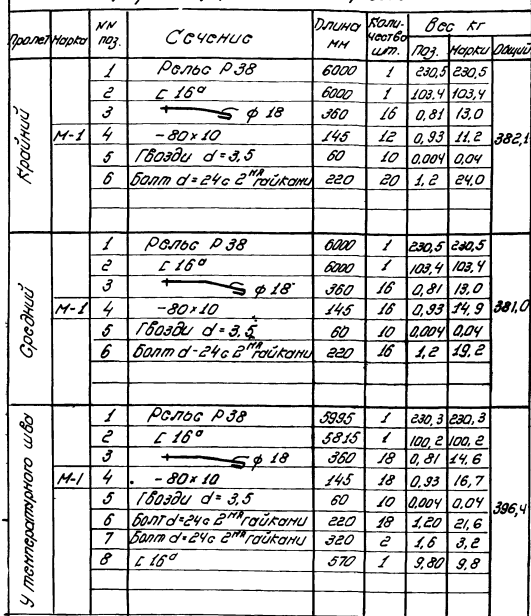 Пролет Марка NN поз. Сечение Длина мм Коли-чество шт. Вес кг
поз. марки Общий
Крайний М-1 382,1
1 Рельс Р38 6000 1 230,5 230,5
2 [ 16а 6000 1 103.4 103,4
3 ф 18 360 16 0,81 13,0
4 -80×10 145 12 0,93 11,2
5 Гвозди d=3,5 60 10 0,004 0,04
6 Болт d=24с 2мя гайками 220 20 1,2 24,0
Средний М-1 381,0
1 Рельс Р38 6000 1 230,5 230,5
2 [ 16а 6000 1 103,4 103,4
3 ф 18 360 16 0,81 13,0
4 -80×10 145 16 0,93 14,9
5 Гвозди d=3,5 60 10 0,004 0,04
6 Болт d-24с 2мя гайками 220 16 1,2 19,2
У температурного шва М-1 396,4
1 Рельс Р38 5995 1 230,3 230,3
2 [ 16а 5815 1 100,2 100,2
3 ф 18 360 18 0,81 14,6
4 -80×10 145 18 0,93 16,7
5 Гвозди d=3,5 60 10 0,004 0,04
6 Болт d=24с 2мя гайками 220 18 1,20 21,6
7 Болт d=24с 2мя гайками 320 2 1,6 3,2
8 [ 16а 570 1 9,80 9,8